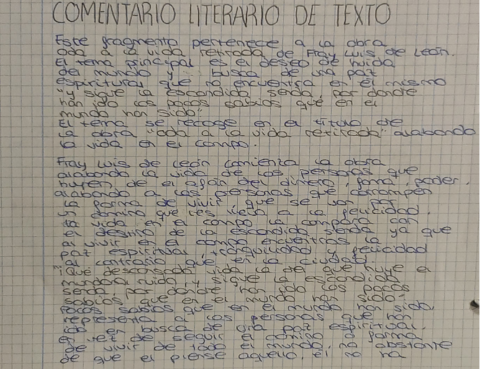 COMENTARIO LITERARIO DE TEXTO
Este fragmento pertenece a la obra
oda a la vida retirada de Fray Luis de León.
El tema principal es el deseo de huida
del mundo y busca de una paz
espiritual que no encuentra en el mismo
"y sigue la escondida senda, por donde
han ido los pocos sabios que en el
mundo han sido"
El tema se recoge en el título de
la obra "oda a la vida retirada" alabando
la vida en el campo.
Fray Luis de León comienza la obra
alabando la vida de las personas que
huyen de el afán del dinero, fama, poder.
alabando a las personas que
la forma de vivir, que se van por
un camino que les lleva a la felicidad.
la vida en el campo la compara con
el de la escondida senda ya que
al vivir en el campo encuentras la
paz espiritual, tranquilidad y felicidad
al contrario que en la ciudad.
"¡Qué descansada vida la de que huye el
mundanal ruido, y sigue la escondida
senda por donde han ido los pocos
sabios que en el mundo han sido"
Pocos sabios que en el mundo han sido,
representa a las personas que han
ido en busca de una paz espiritual
en vez de seguir el camino o forma
de vivir de todo el mundo, no obstante
de que el piense aquello, él no ha